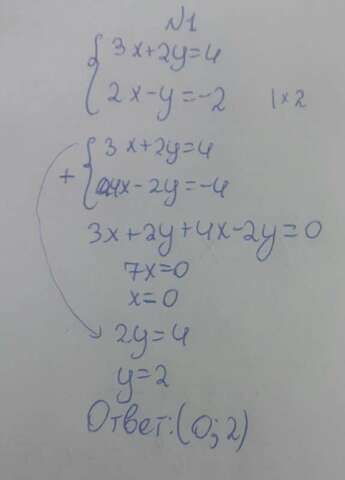 №1
{ 3x+2y=4
2x-y=-2 | ×2
+ { 3x+2y=4
4x-2y=-4
3x+2y+4x-2y=0
7x=0
x=0
2y=4
y=2
Ответ: (0; 2)